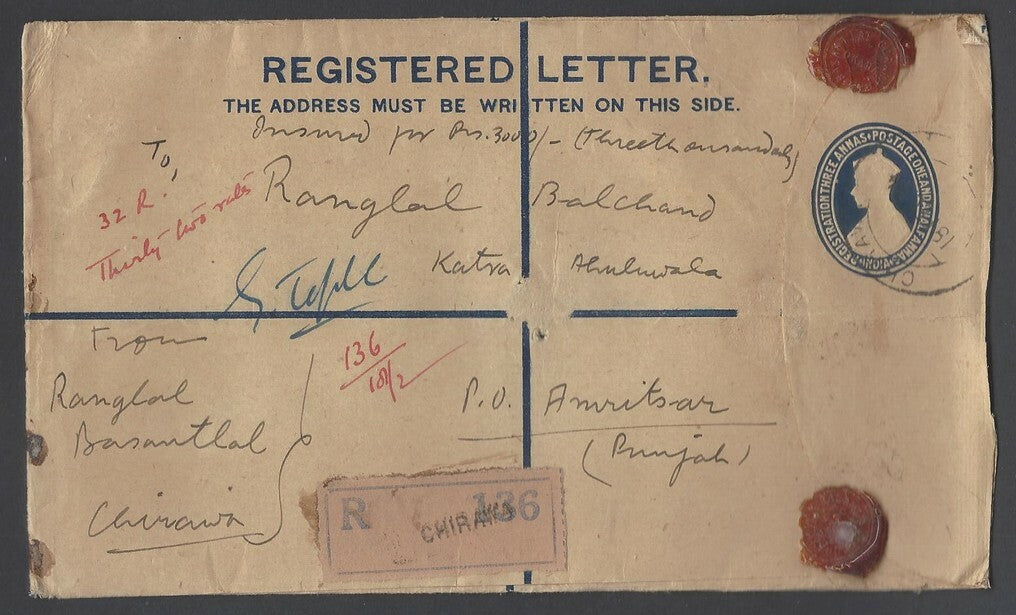 REGISTERED LETTER.
THE ADDRESS MUST BE WRITTEN ON THIS SIDE.
Insured for Rs. 3000/- (Threethousandonly)
To,
32 R.
Thirty two
Ranglal Balchand
Katra Ahuluwala
REGISTRATION THREE ANNAS • POSTAGE ONE AND A HALF ANNAS INDIA
From
Ranglal
Basantlal
Chirawa
136
18/2
P.O. Amritsar
(Punjab)
R 136
CHIRAWA